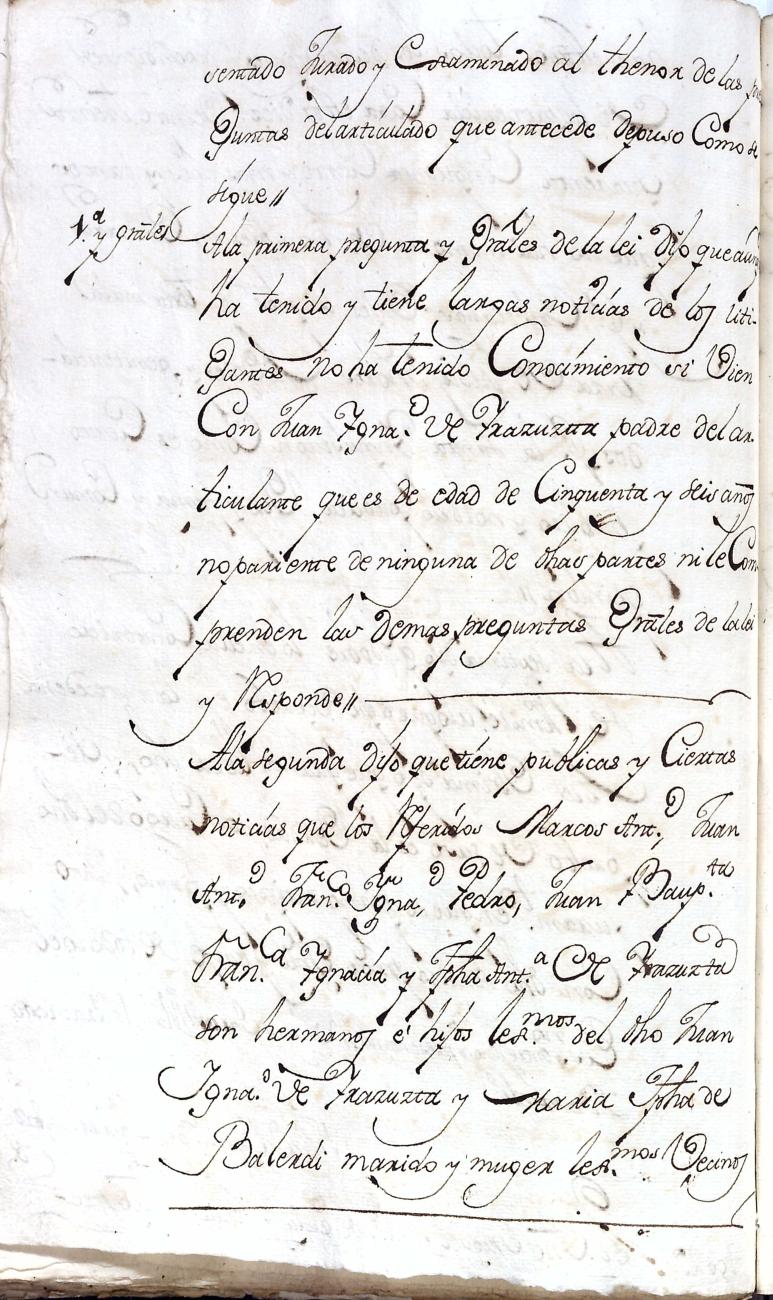 sentado Jurado y Examinado al thenor de las pre
Guntas del articulado que antecede depuso Como se
sigue //
1.ª y grãles
Ala primera pregunta y Grãles de la lei dijo que aunq
ha tenido y tiene largas noticias de los liti-
Gantes no ha tenido Conocimiento si Vien
Con Juan Ygna.º de Yrazuzta padre del ar
ticulante que es de edad de Cinquenta y seis años
no pariente de ninguna de dhas partes ni le Com
prenden las demas preguntas Grãles de la lei
y Responde //
Ala segunda dijo que tiene publicas y Ciertas
noticias que los Referidos Marcos Ant.º, Juan
Ant.º Fran.co Ygna.º, Pedro, Juan Baup.ta
Fran.ca Ygnacia y Jpha Ant.a de Yrazuzta
son hermanos é hijos lex.mos del dho Juan
Ygna.º de Yrazuzta y Maria Jpha de
Balerdi marido y muger lex.mos Vecinos